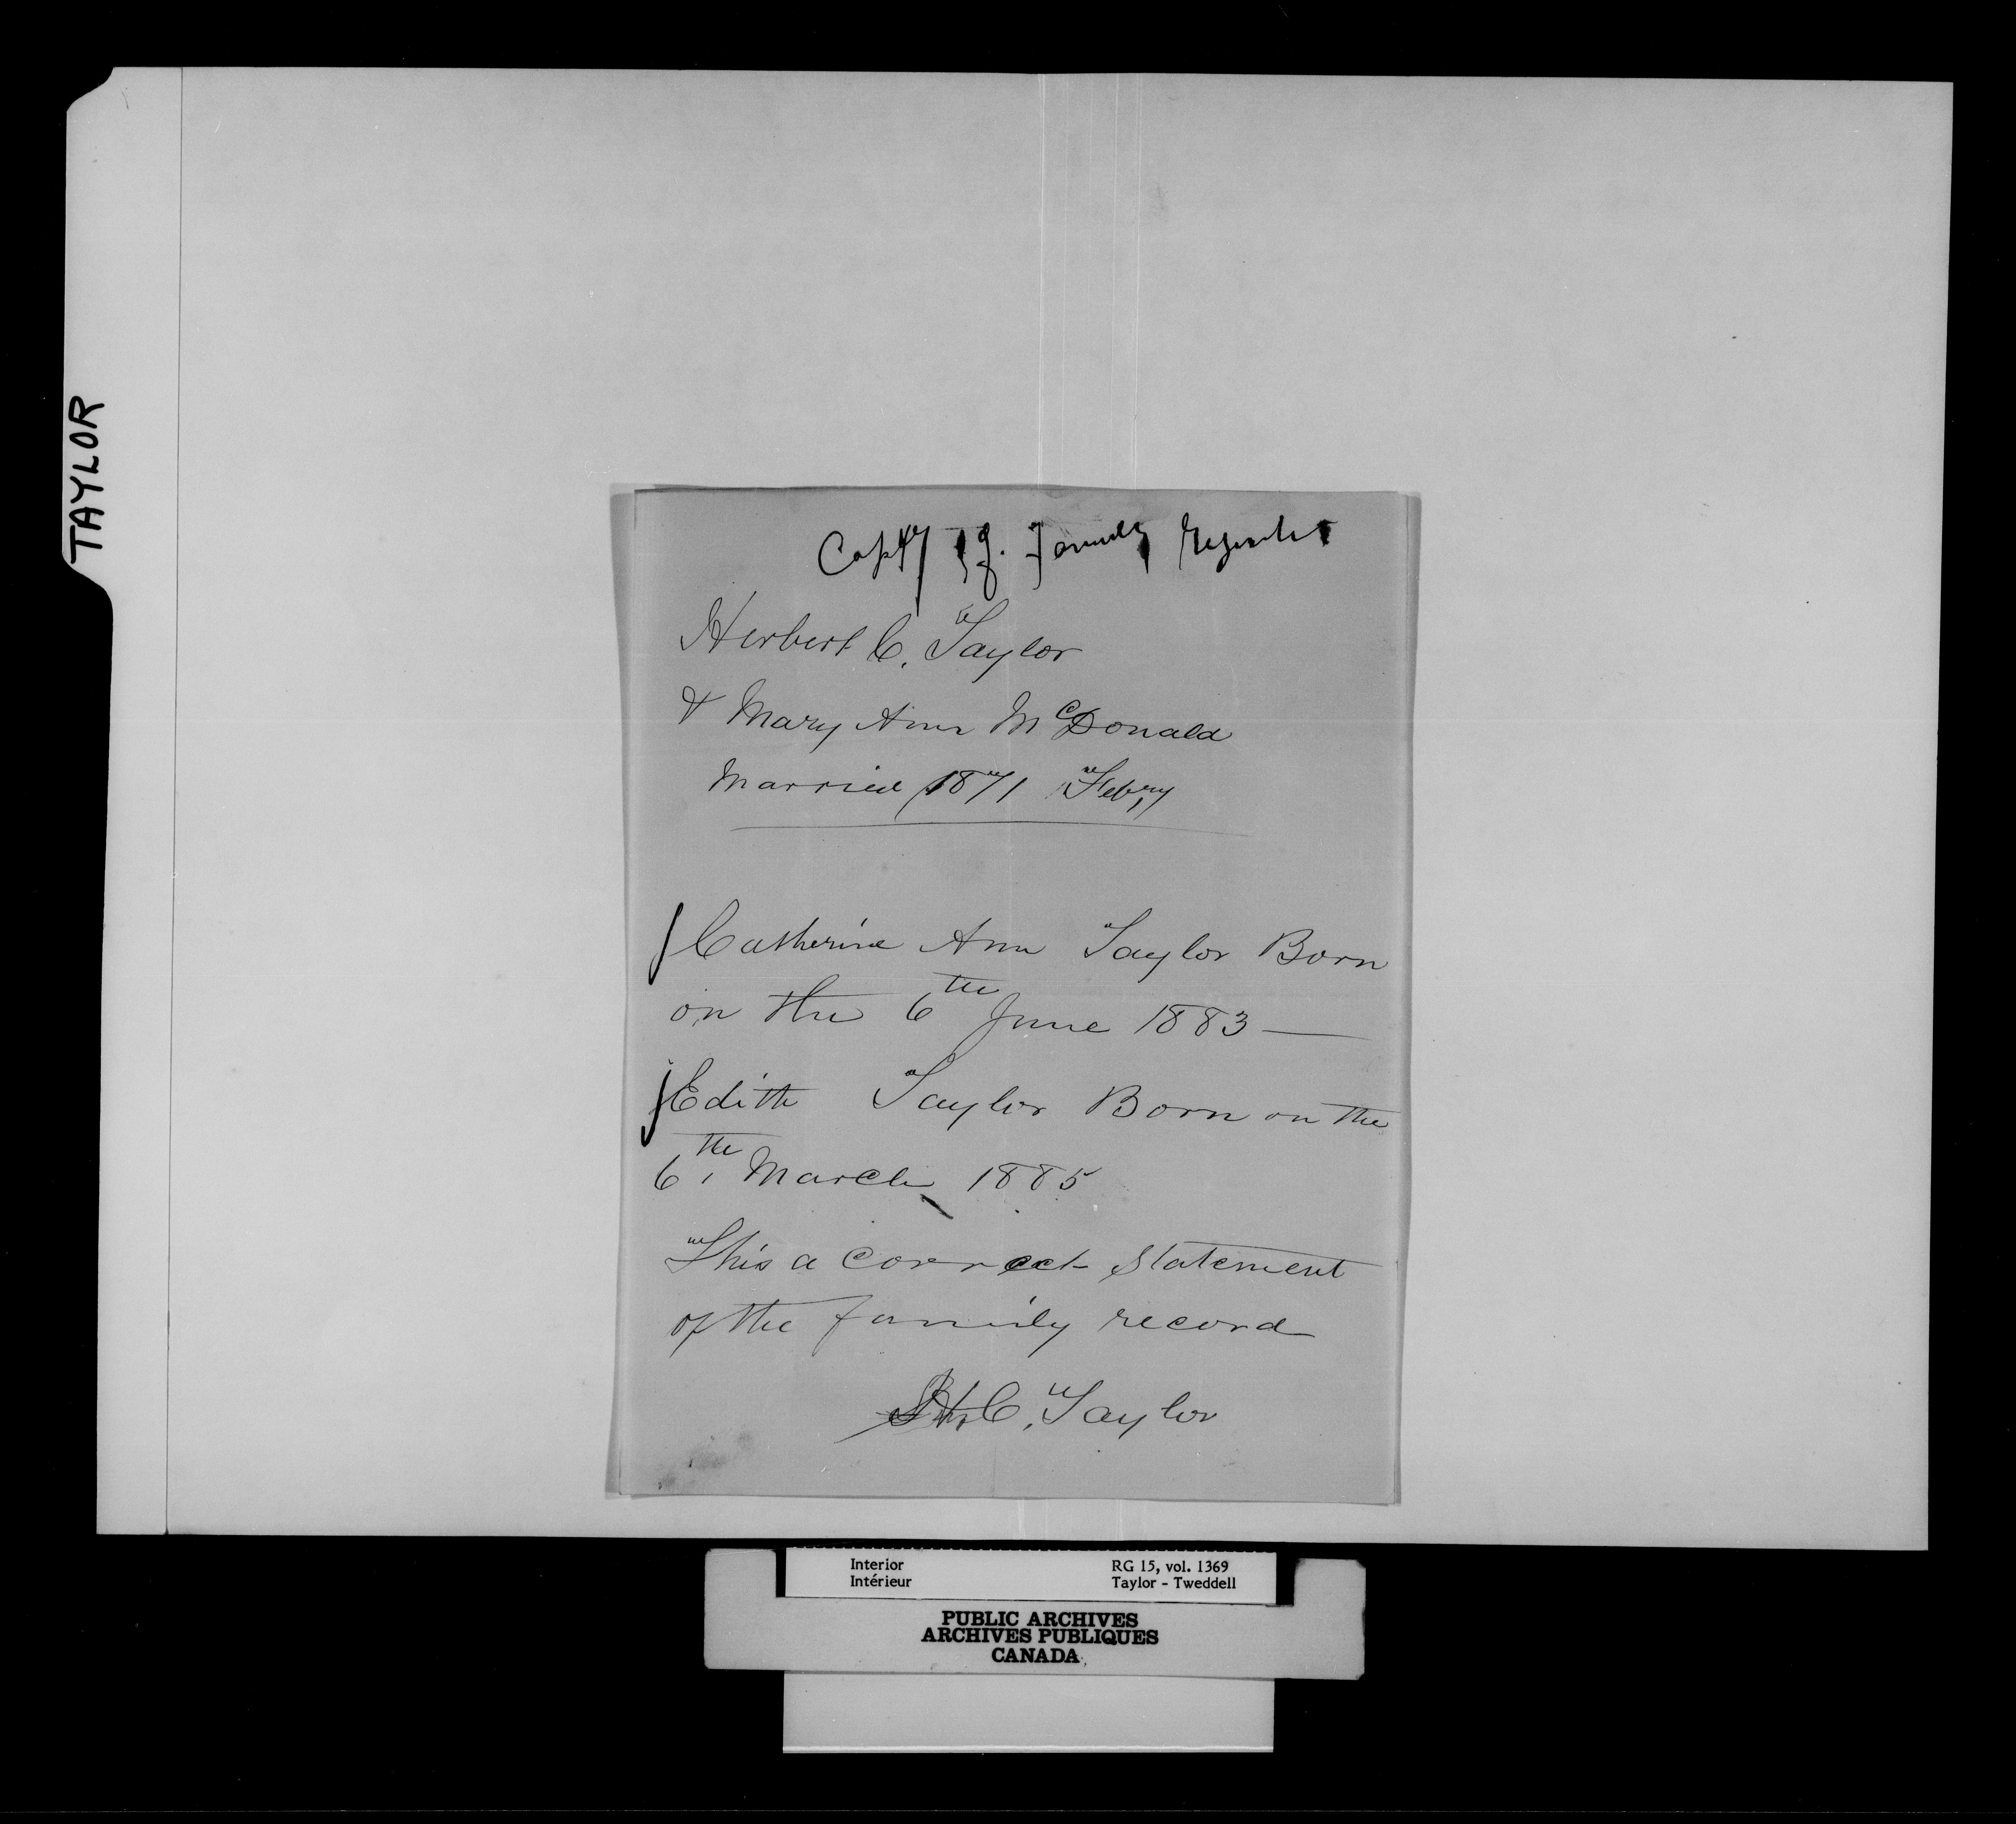 TAYLOR
Copy of Family Register
Herbert C. Taylor
& Mary Ann McDonald
Married 1871 Febry
Catherine Ann Taylor Born
on the 6th June 1883 —
Edith Taylor Born on the
6th March 1885
This a correct statement
of the family record
H. C. Taylor
Interior RG 15, vol. 1369
Intérieur Taylor - Tweddell
PUBLIC ARCHIVES
ARCHIVES PUBLIQUES
CANADA